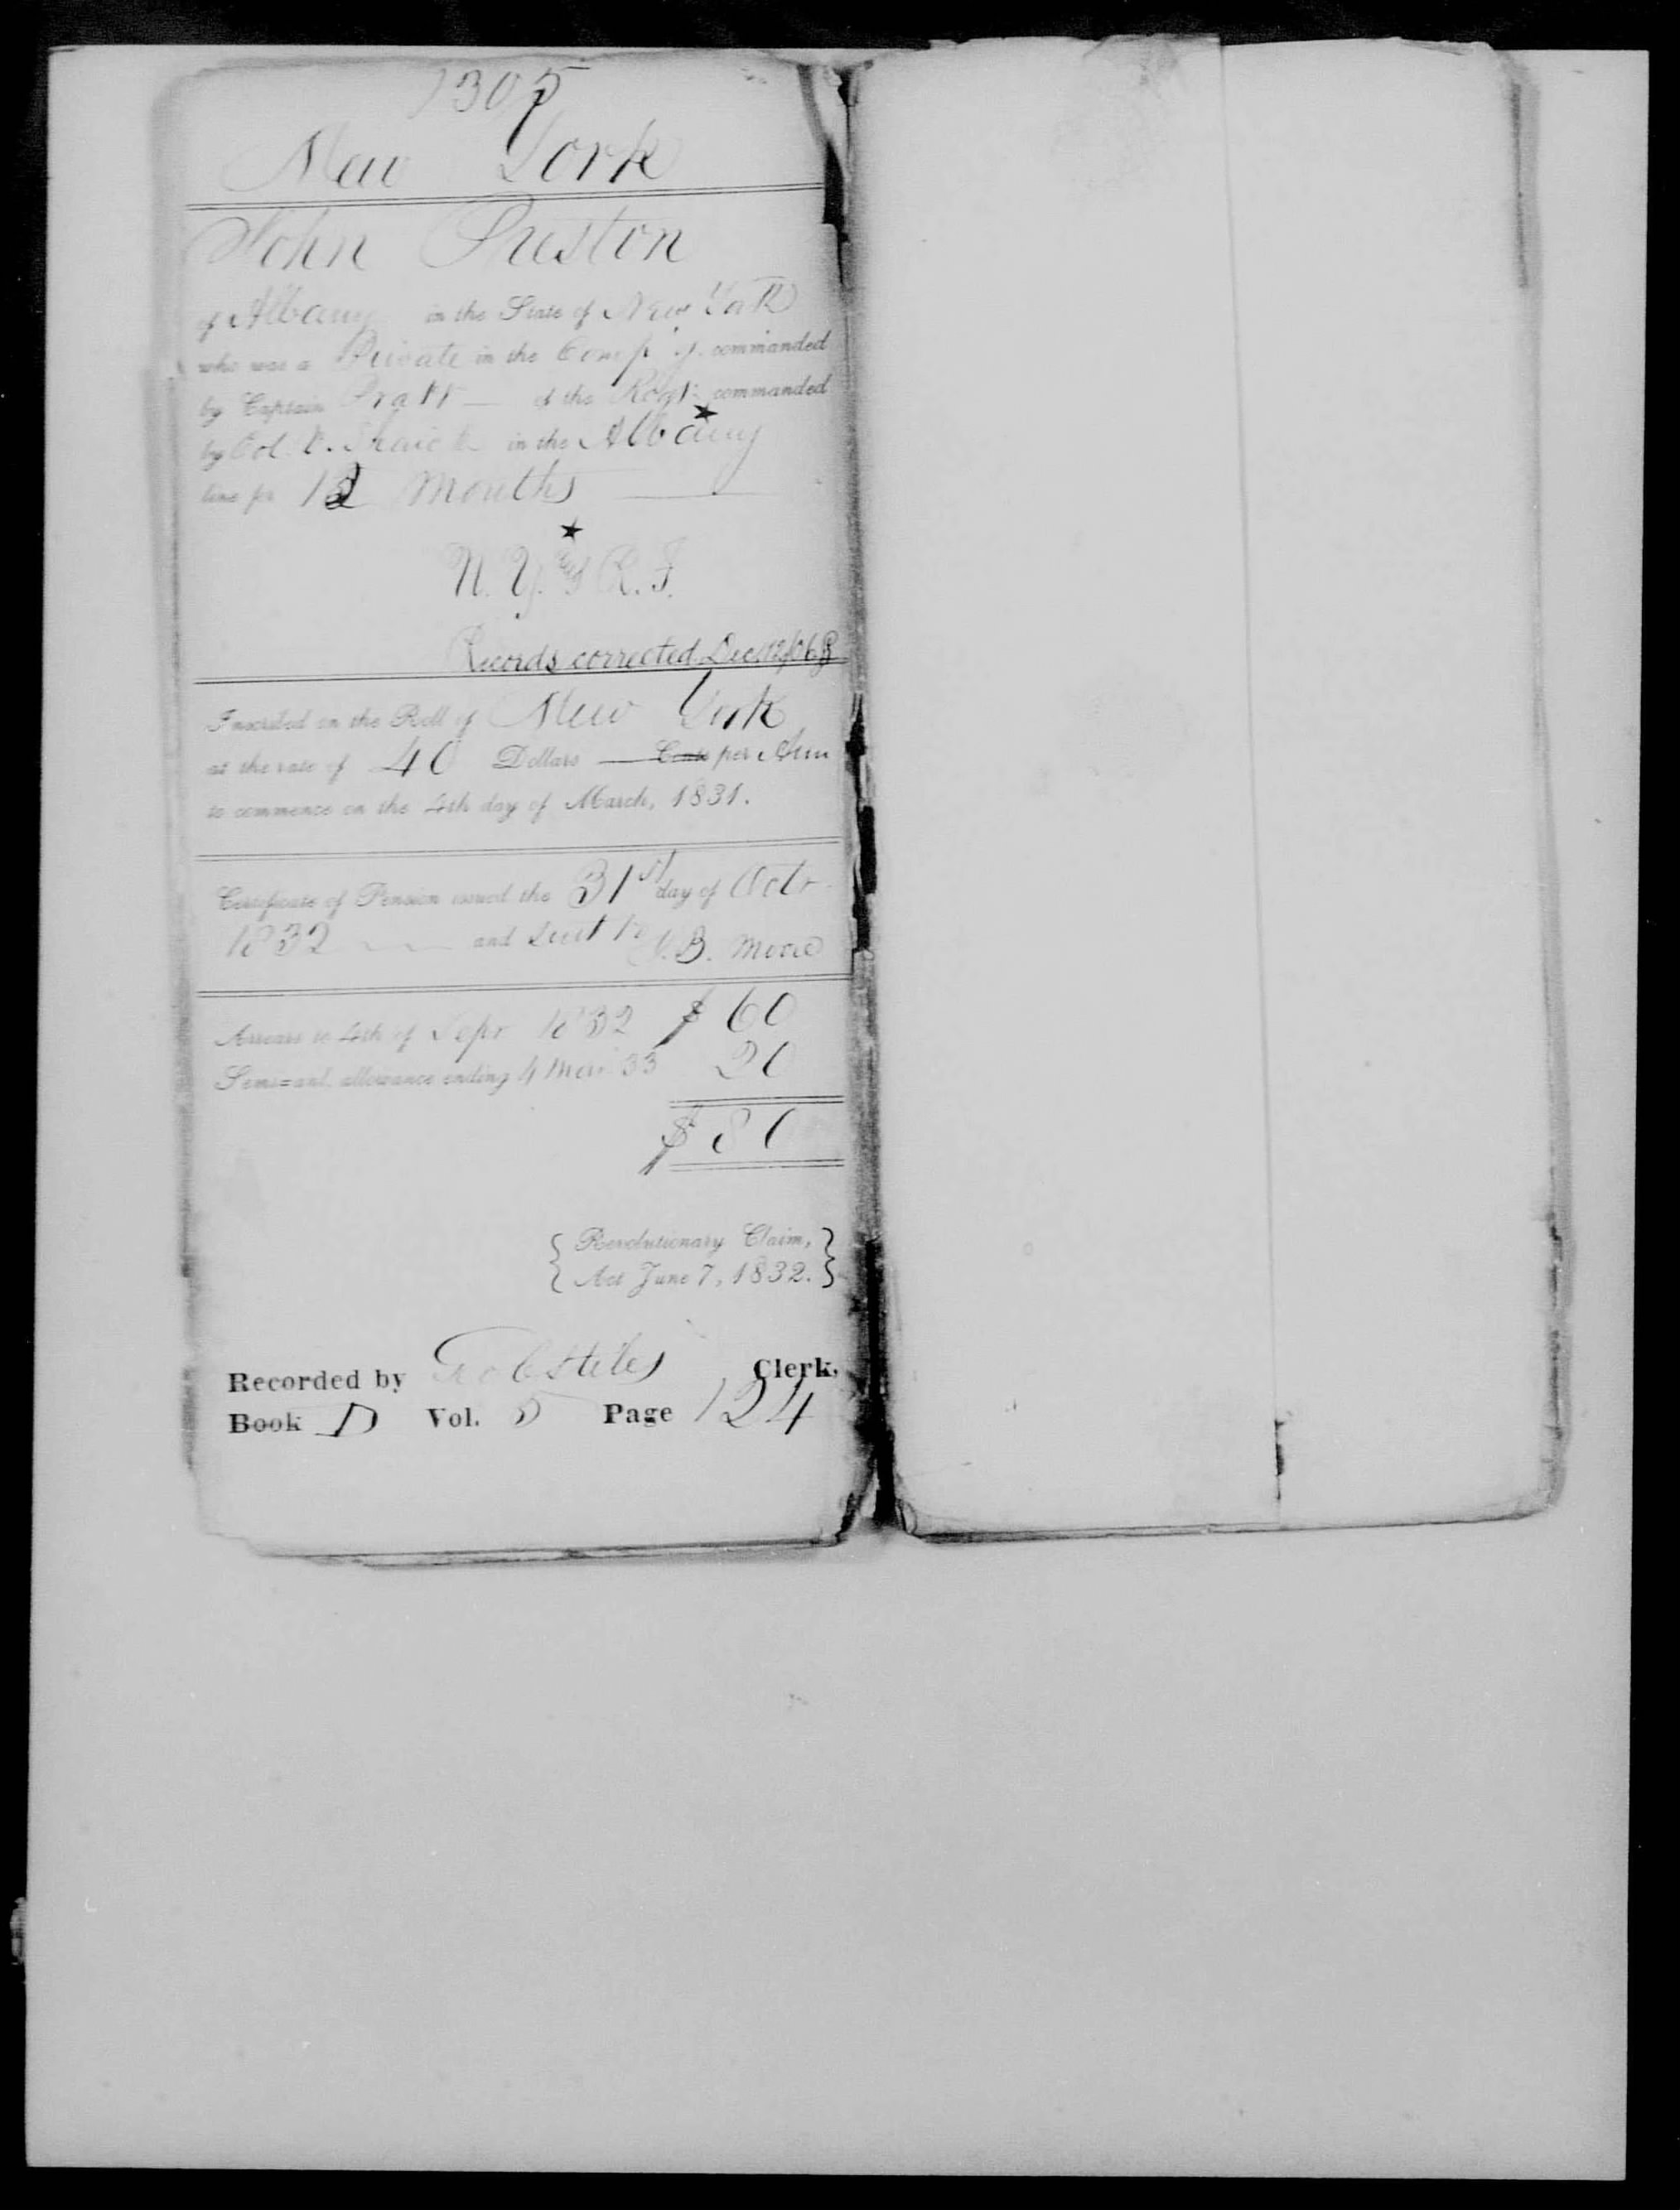 1305
New York
John Preston
of Albany in the State of New York
who was a Private in the Comp'y commanded
by Captain Pratt — of the Regt. commanded
by Col. V. Shaick in the Albany
line for 12 Months
N. Y. R. F.
Records corrected Dec. 12/06
Inscribed on the Roll of New York
at the rate of 40 Dollars — Cents per Ann
to commence on the 4th day of March, 1831.
Certificate of Pension issued the 31st day of Octr
1832 and Sent to J. B. Moore
Arrears to 4th of Sepr 1832 $ 60
Semi-anl. allowance ending 4 Mar. 33 20
$ 80
{ Revolutionary Claim, }
{ Act June 7, 1832. }
Recorded by Clerk,
Book D Vol. 5 Page 124